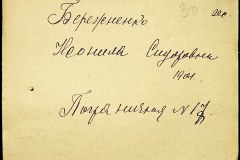 Бережненко
Неонила Сидоровна
1901.
Пограничная N 17